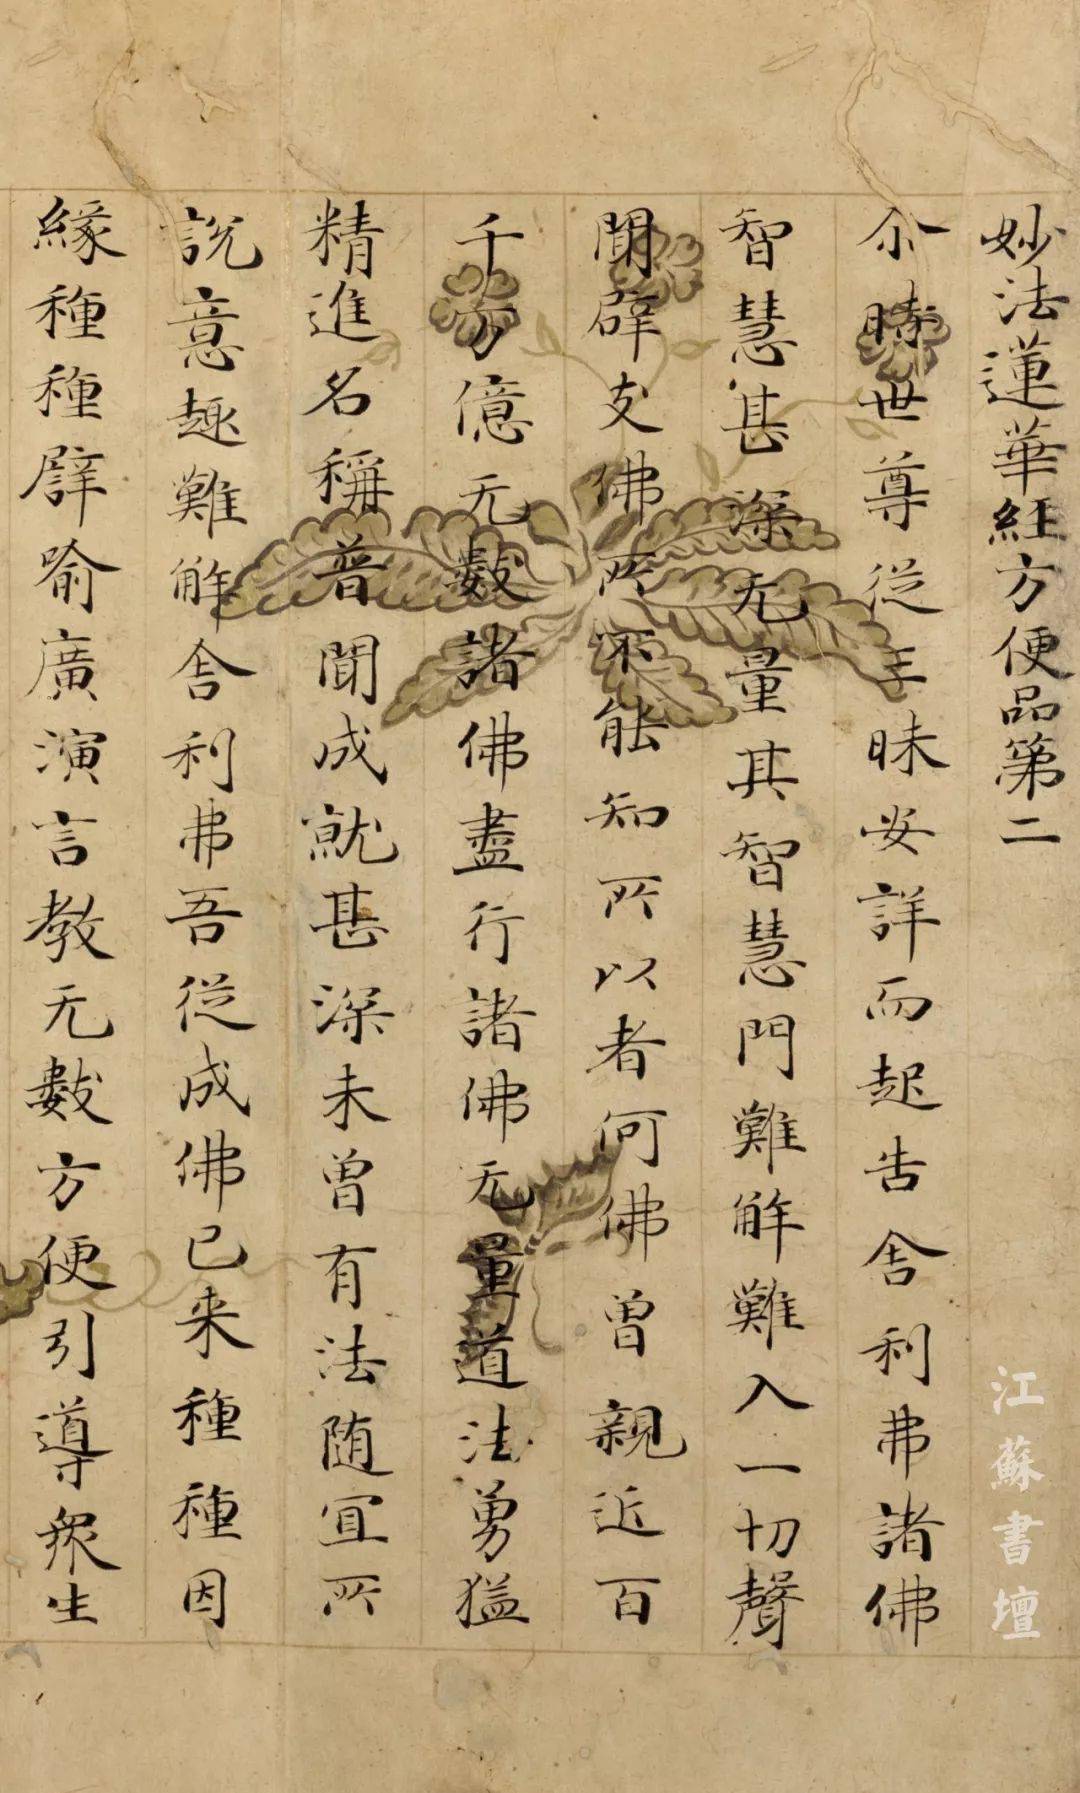 妙法蓮華經方便品第二
尒時世尊從三昧安詳而起告舍利弗諸佛
智慧甚深无量其智慧門難解難入一切聲
聞辟支佛所不能知所以者何佛曾親近百
千万億无數諸佛盡行諸佛无量道法勇猛
精進名稱普聞成就甚深未曾有法随宜所
說意趣難解舍利弗吾從成佛已来種種因
緣種種譬喻廣演言教无數方便引導衆生
江蘇書壇